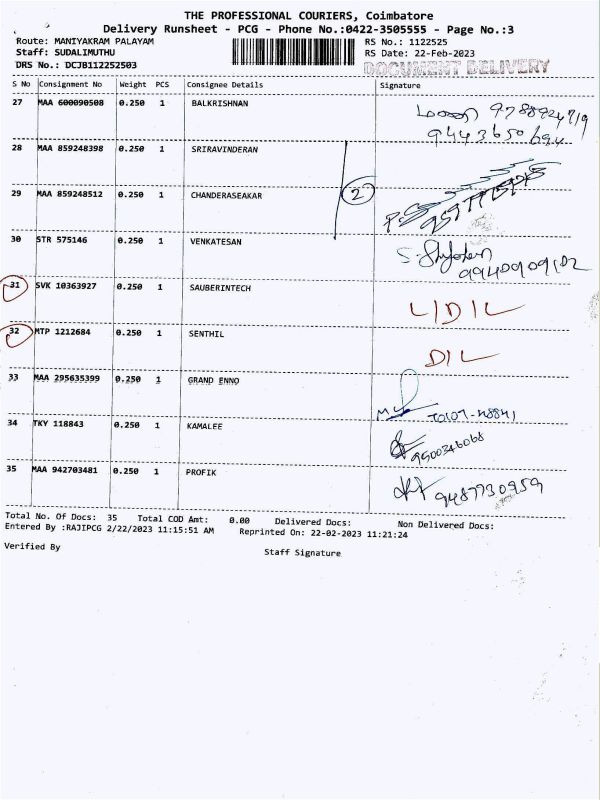 THE PROFESSIONAL COURIERS, Coimbatore
Delivery Runsheet - PCG - Phone No.:0422-3505555 - Page No.:3
Route: MANIYAKRAM PALAYAM RS No.: 1122525
Staff: SUDALIMUTHU RS Date: 22-Feb-2023
DRS No.: DCJB112252503 DOCUMENT DELIVERY
S No Consignment No Weight PCS Consignee Details Signature
27 MAA 600090508 0.250 1 BALKRISHNAN 9788924719
9443650694
28 MAA 859248398 0.250 1 SRIRAVINDERAN
29 MAA 859248512 0.250 1 CHANDERASEAKAR 2
30 STR 575146 0.250 1 VENKATESAN
9940909102
31 SVK 10363927 0.250 1 SAUBERINTECH L/D/L
32 MTP 1212684 0.250 1 SENTHIL D/L
33 MAA 295635399 0.250 1 GRAND ENNO
34 TKY 118843 0.250 1 KAMALEE 9500346068
35 MAA 942703481 0.250 1 PROFIK 9487730959
Total No. Of Docs: 35 Total COD Amt: 0.00 Delivered Docs: Non Delivered Docs:
Entered By :RAJIPCG 2/22/2023 11:15:51 AM Reprinted On: 22-02-2023 11:21:24
Verified By Staff Signature